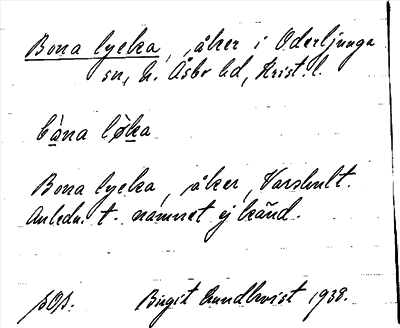 Bona lycka, åker i Oderljunga
sn, N. Åsbo hd, Krist. l.
bàna lø̀ka
Bona lycka, åker, Varshult.
Anledn. t. namnet ej känd.
pop. Birgit Lundkvist 1938.